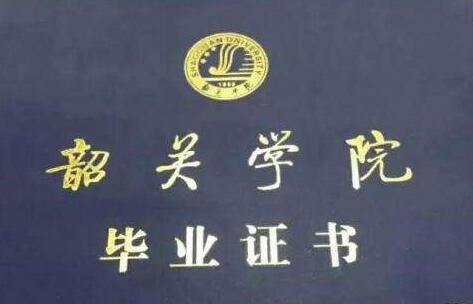 SHAOGUAN UNIVERSITY
韶关学院
韶关学院
毕业证书